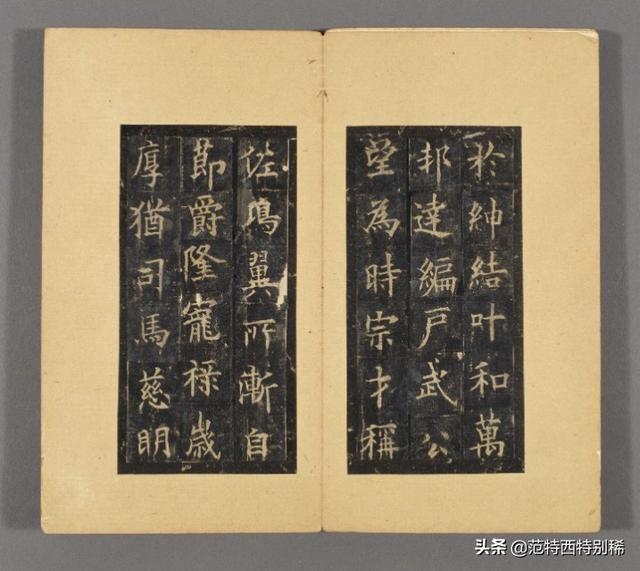 於紳結叶和萬
邦達編戸武公
望為時宗才稱
佐鴻翼所漸自
節爵隆寵禄歲
厚猶司馬慈明
头条 @范特西特别稀